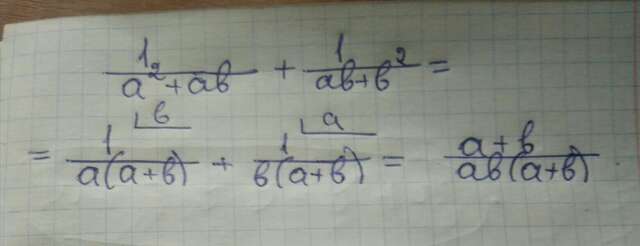 1/(a²+ab) + 1/(ab+b²) =
= 1/(a(a+b)) ⌊b + 1/(b(a+b)) ⌊a = (a+b)/(ab(a+b))